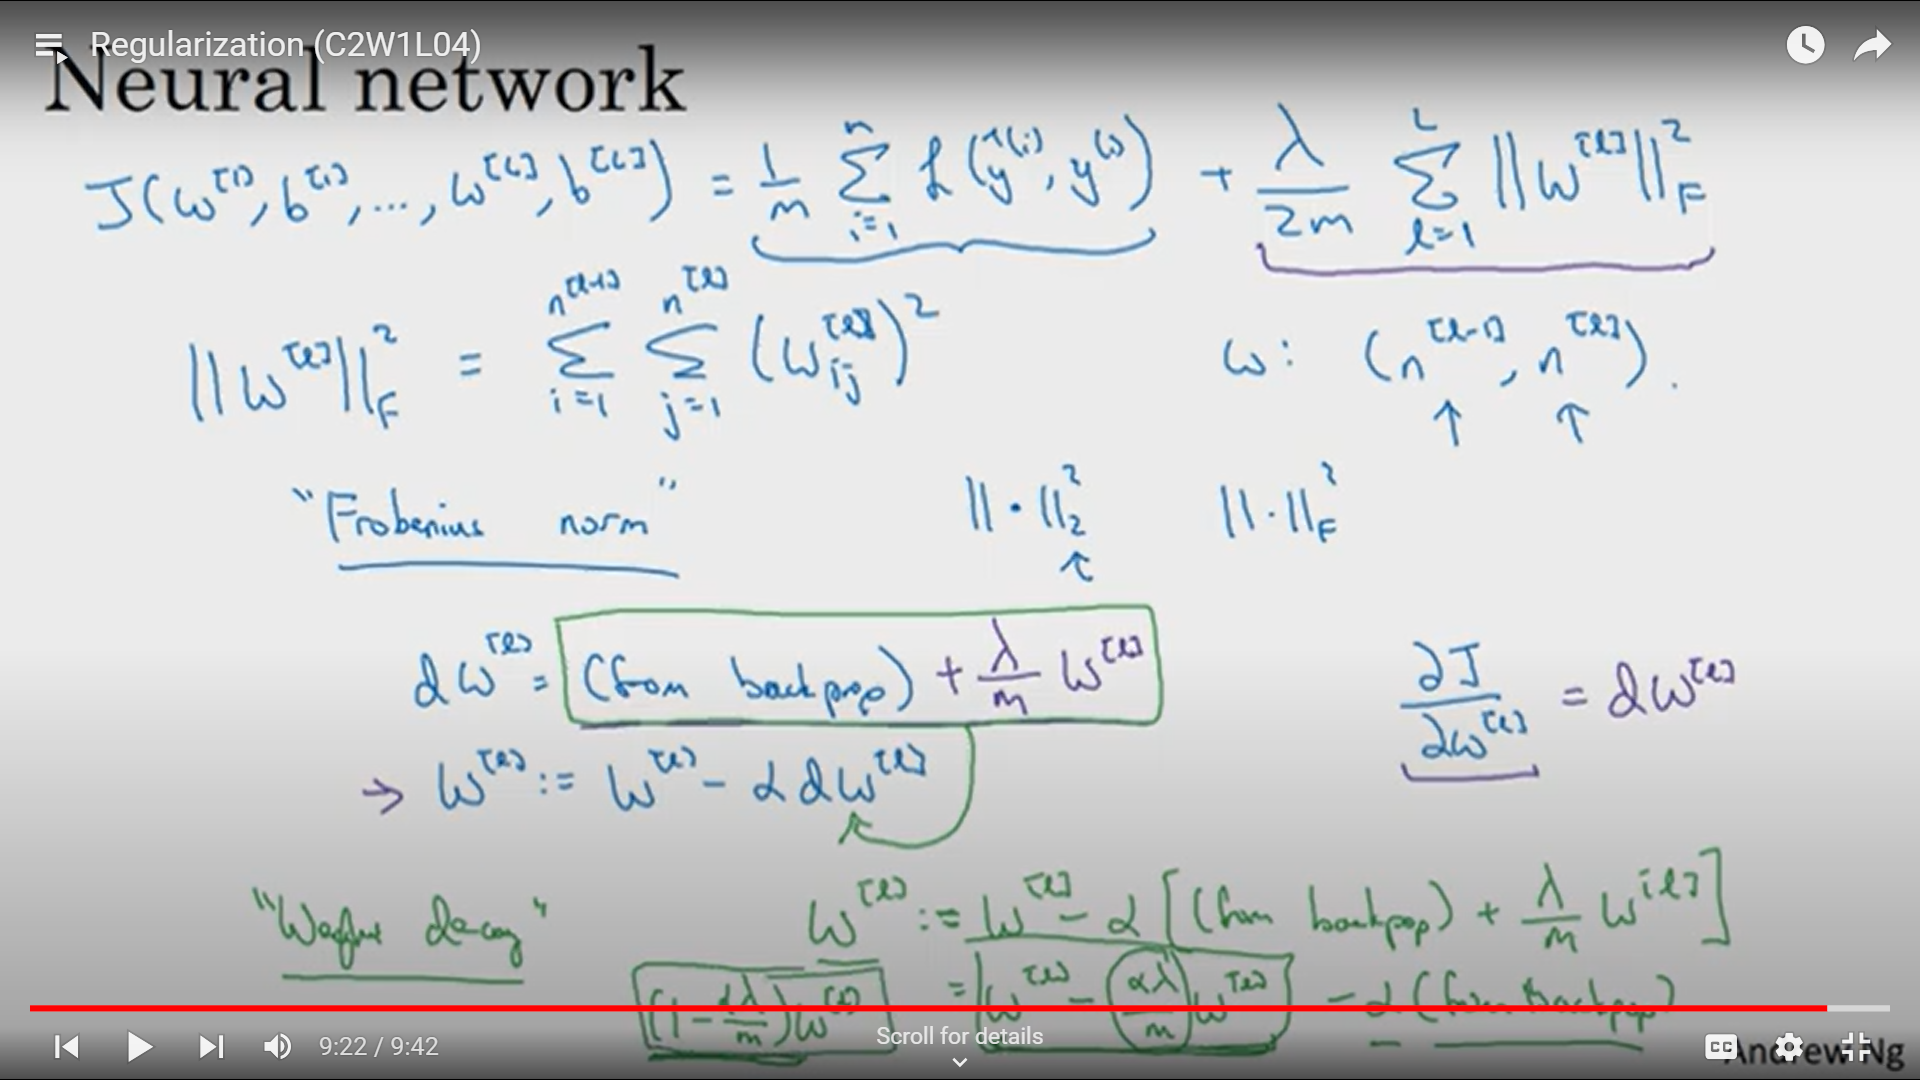 Regularization (C2W1L04)
Neural network
J(w^[1], b^[1], ..., w^[L], b^[L]) = 1/m Σ_{i=1}^{n} L(ŷ^(i), y^(i)) + λ/2m Σ_{l=1}^{L} ||w^[l]||_F^2
||w^[l]||_F^2 = Σ_{i=1}^{n^[l-1]} Σ_{j=1}^{n^[l]} (w_ij^[l])^2 w: (n^[l-1], n^[l]).
"Frobenius norm" ||·||_2^2 ||·||_F^2
dw^[l] = (from backprop) + λ/m w^[l] ∂J/∂w^[l] = dw^[l]
→ w^[l] := w^[l] - α dw^[l]
"Weight decay" w^[l] := w^[l] - α [(from backprop) + λ/m w^[l]]
(1 - αλ/m) w^[l] = w^[l] - αλ/m w^[l] - α (from backprop)
9:22 / 9:42 Scroll for details CC Andrew Ng